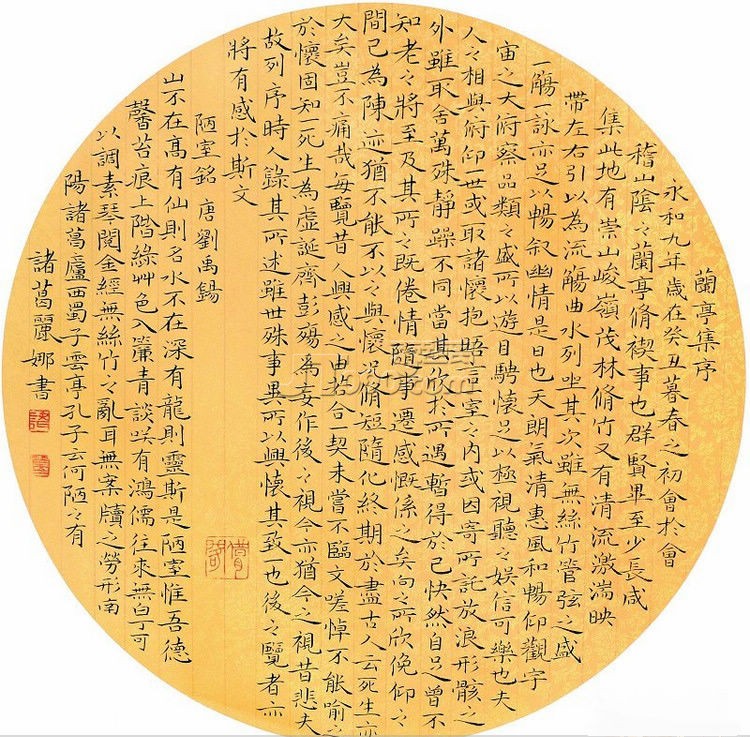 蘭亭集序
永和九年歲在癸丑暮春之初會於會
稽山陰之蘭亭脩禊事也群賢畢至少長咸
集此地有崇山峻嶺茂林脩竹又有清流激湍映
帶左右引以為流觴曲水列坐其次雖無絲竹管弦之盛
一觴一詠亦足以暢叙幽情是日也天朗氣清惠風和暢仰觀宇
宙之大俯察品類之盛所以遊目騁懷足以極視聽之娛信可樂也夫
人之相與俯仰一世或取諸懷抱晤言室之內或因寄所託放浪形骸之
外雖取舍萬殊靜躁不同當其欣於所遇暫得於己快然自足曾不
知老之將至及其所之既倦情隨事遷感慨係之矣向之所欣俛仰之
間已為陳迹猶不能不以之興懷況脩短隨化終期於盡古人云死生亦
大矣豈不痛哉每覽昔人興感之由若合一契未嘗不臨文嗟悼不能喻之
於懷固知一死生為虛誕齊彭殤為妄作後之視今亦猶今之視昔悲夫
故列序時人錄其所述雖世殊事異所以興懷其致一也後之覽者亦
將有感於斯文
陋室銘 唐 劉禹錫
山不在高有仙則名水不在深有龍則靈斯是陋室惟吾德
馨苔痕上階綠艸色入簾青談咲有鴻儒往來無白丁可
以調素琴閱金經無絲竹之亂耳無案牘之勞形南
陽諸葛廬西蜀子雲亭孔子云何陋之有
諸葛麗娜書